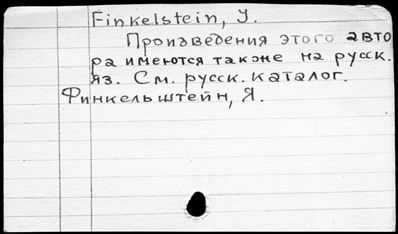 Finkelstein, Y.
Произведения этого авто
ра имеются также на русск.
яз. См. русск. каталог.
Финкельштейн, Я.